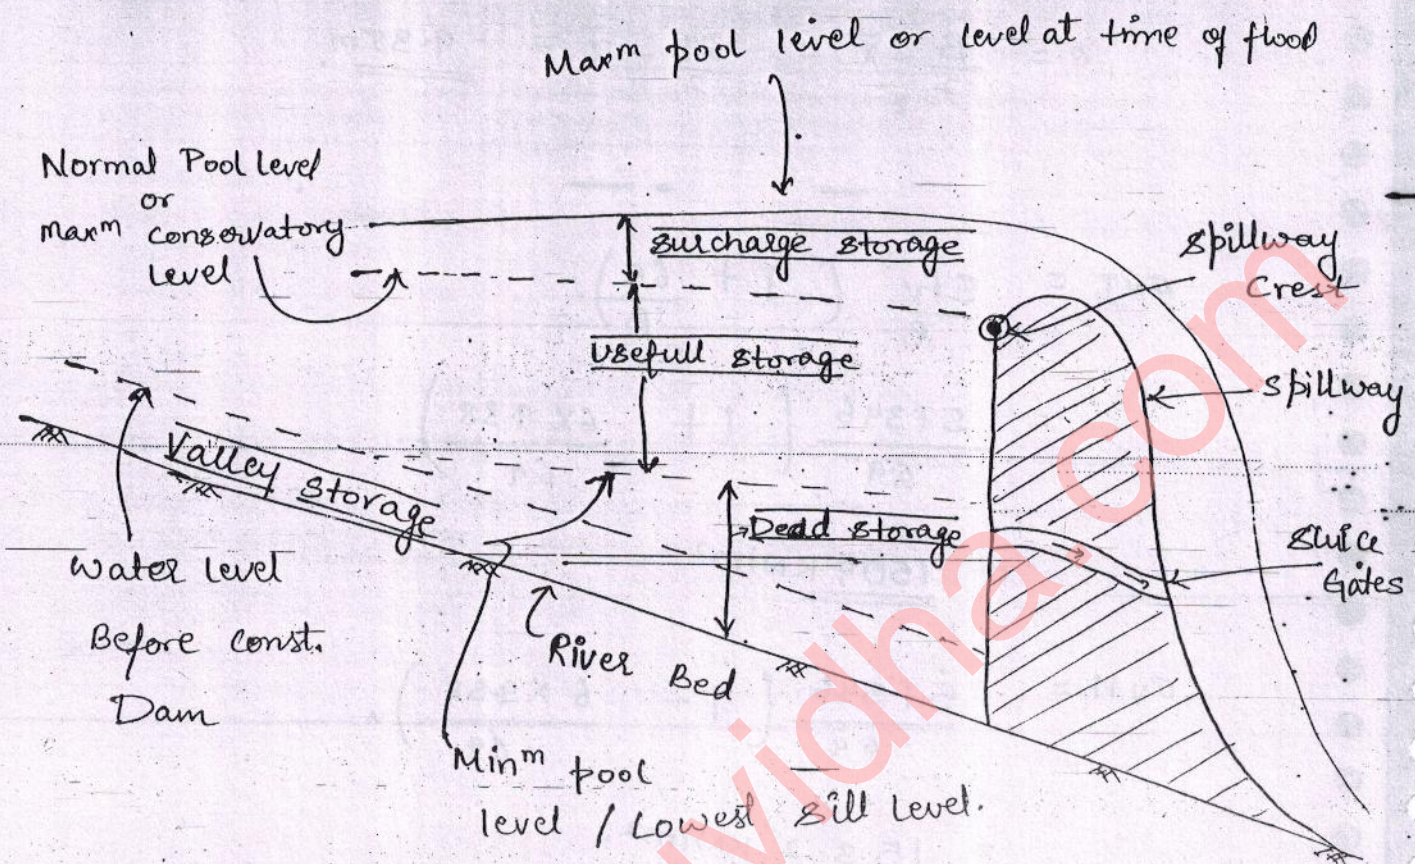 Maxᵐ pool level or level at time of flood
Normal Pool level
or
maxᵐ conservatory
level
surcharge storage
spillway
Crest
Usefull storage
spillway
Valley storage
Dead storage
sluice
Gates
water level
Before const.
Dam
River Bed
Minᵐ pool
level / Lowest sill level.
vidha.com